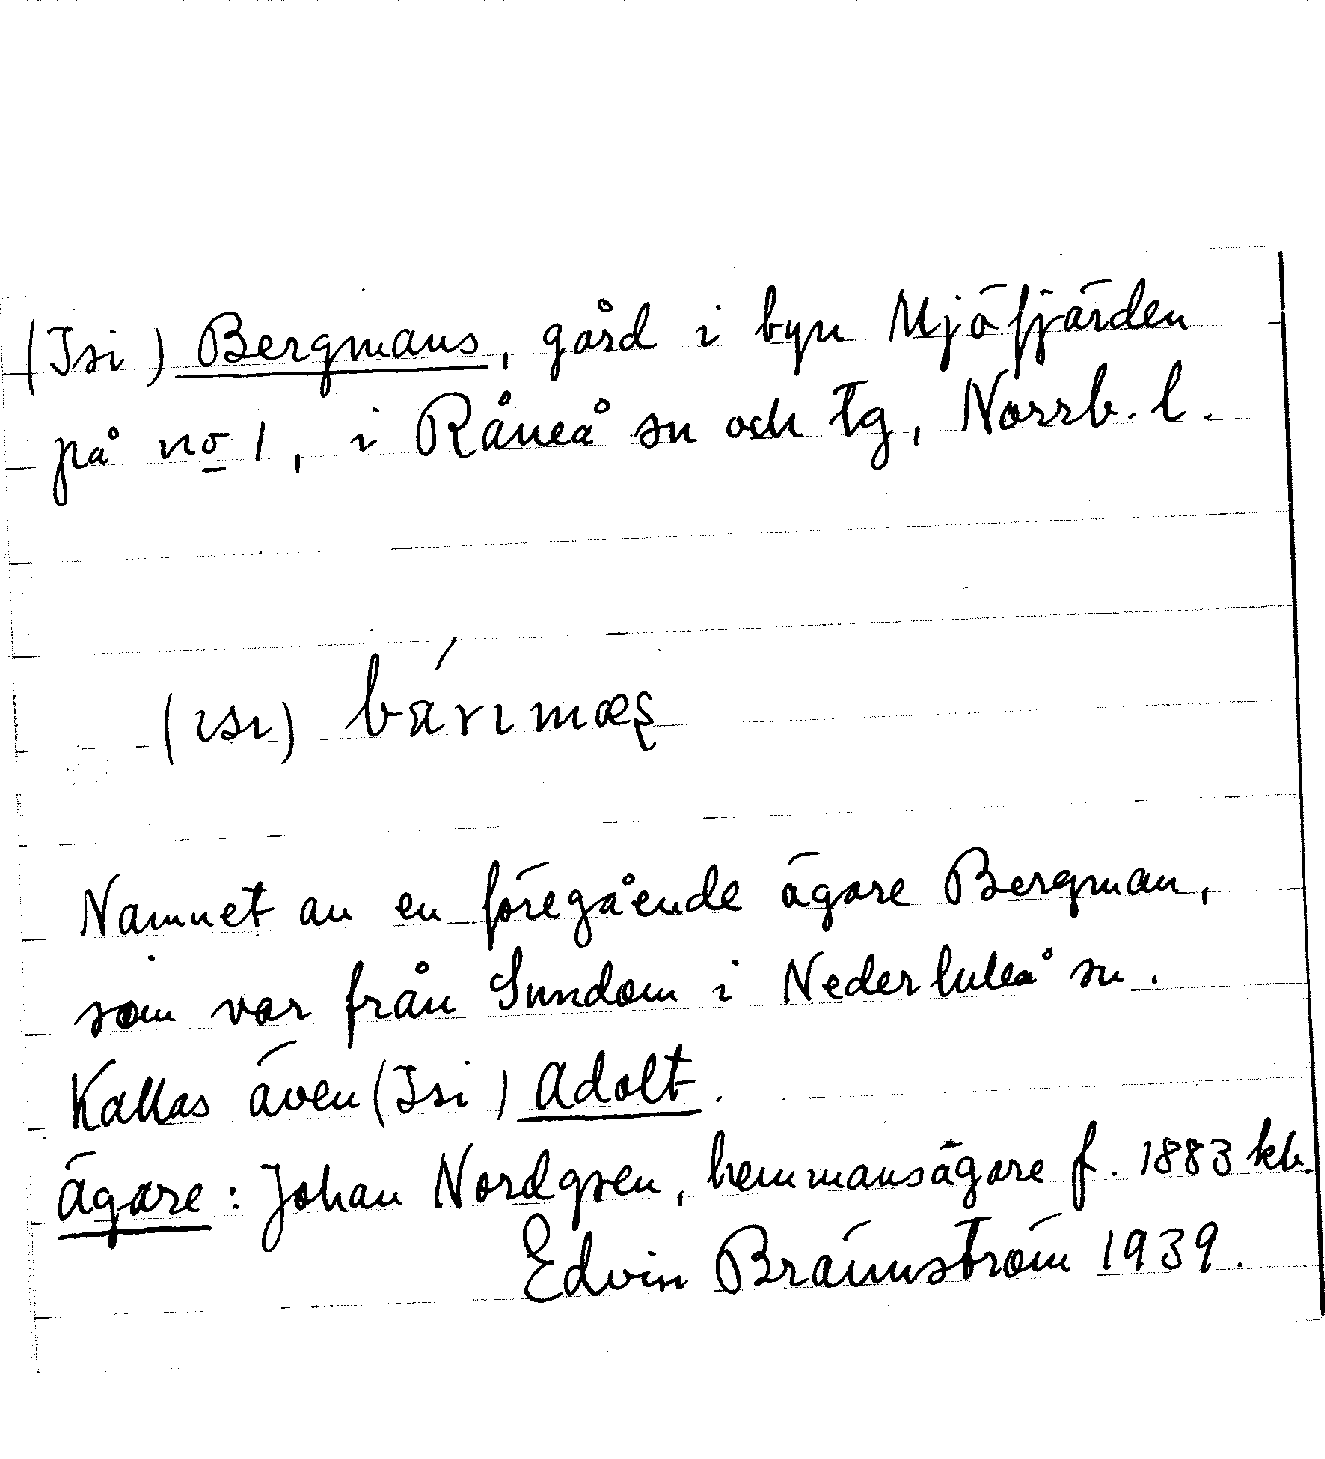 (Isi) Bergmans, gård i byn Mjöfjärden
på no 1, i Råneå sn och tg, Norrb. l.
(ısı)
Namnet av en föregående ägare Bergman,
som var från Sundom i Nederluleå sn.
Kallas även (Isi) Adolt.
Ägare: Johan Nordgren, hemmansägare f. 1883 kb.
Edvin Brännström 1939.